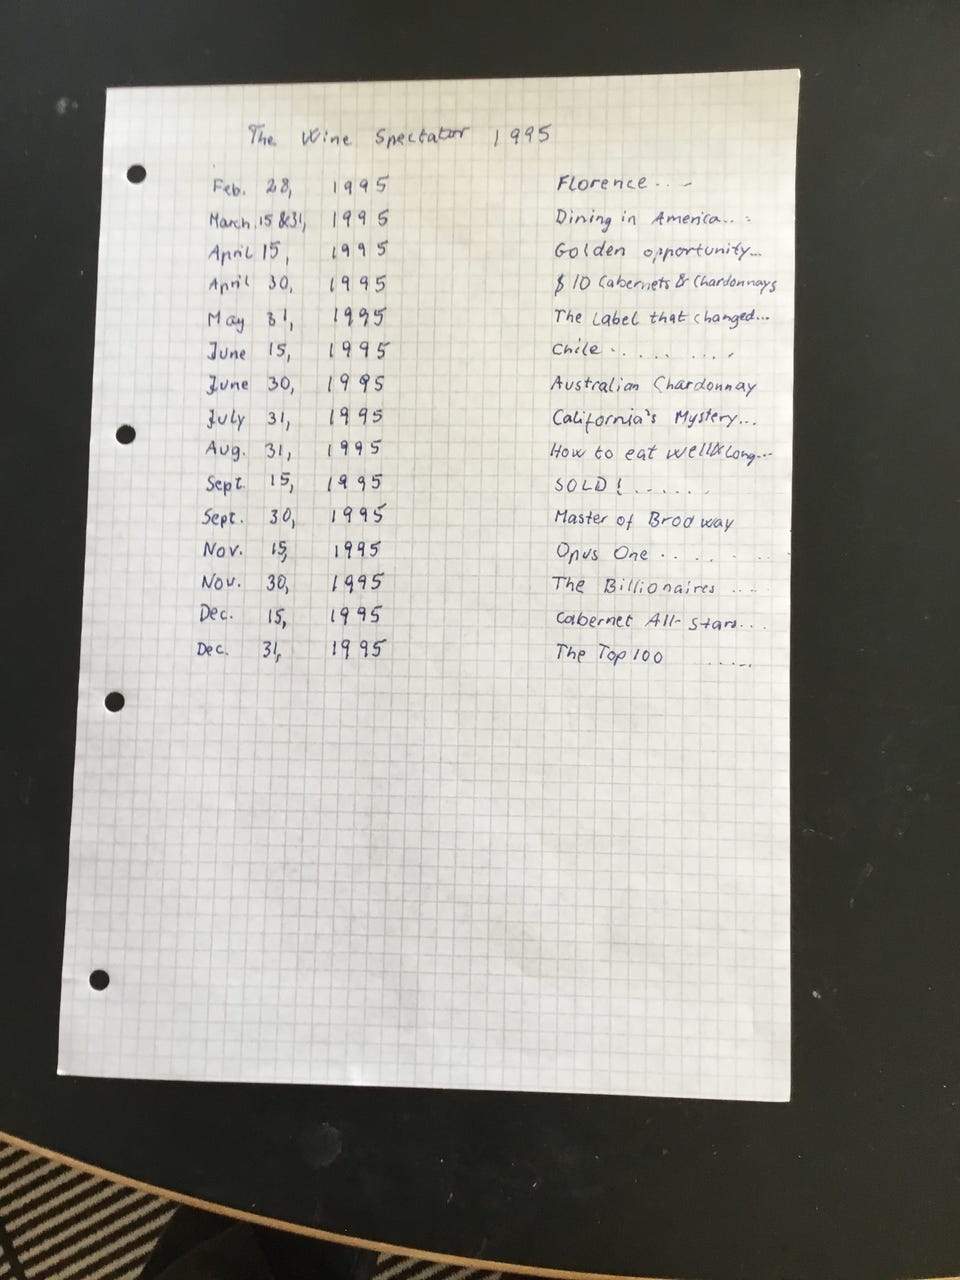 The Wine Spectator 1995
Feb. 28, 1995 Florence ....
March 15 &31, 1995 Dining in America....
April 15, 1995 Golden opportunity...
April 30, 1995 $10 Cabernets & Chardonnays
May 31, 1995 The Label that changed...
June 15, 1995 Chile .........
June 30, 1995 Australian Chardonnay
July 31, 1995 California's Mystery...
Aug. 31, 1995 How to eat well&long...
Sept. 15, 1995 SOLD! ......
Sept. 30, 1995 Master of Brodway
Nov. 15, 1995 Opus One ......
Nov. 30, 1995 The Billionaires ....
Dec. 15, 1995 Cabernet All-Stars...
Dec. 31, 1995 The Top 100 .....